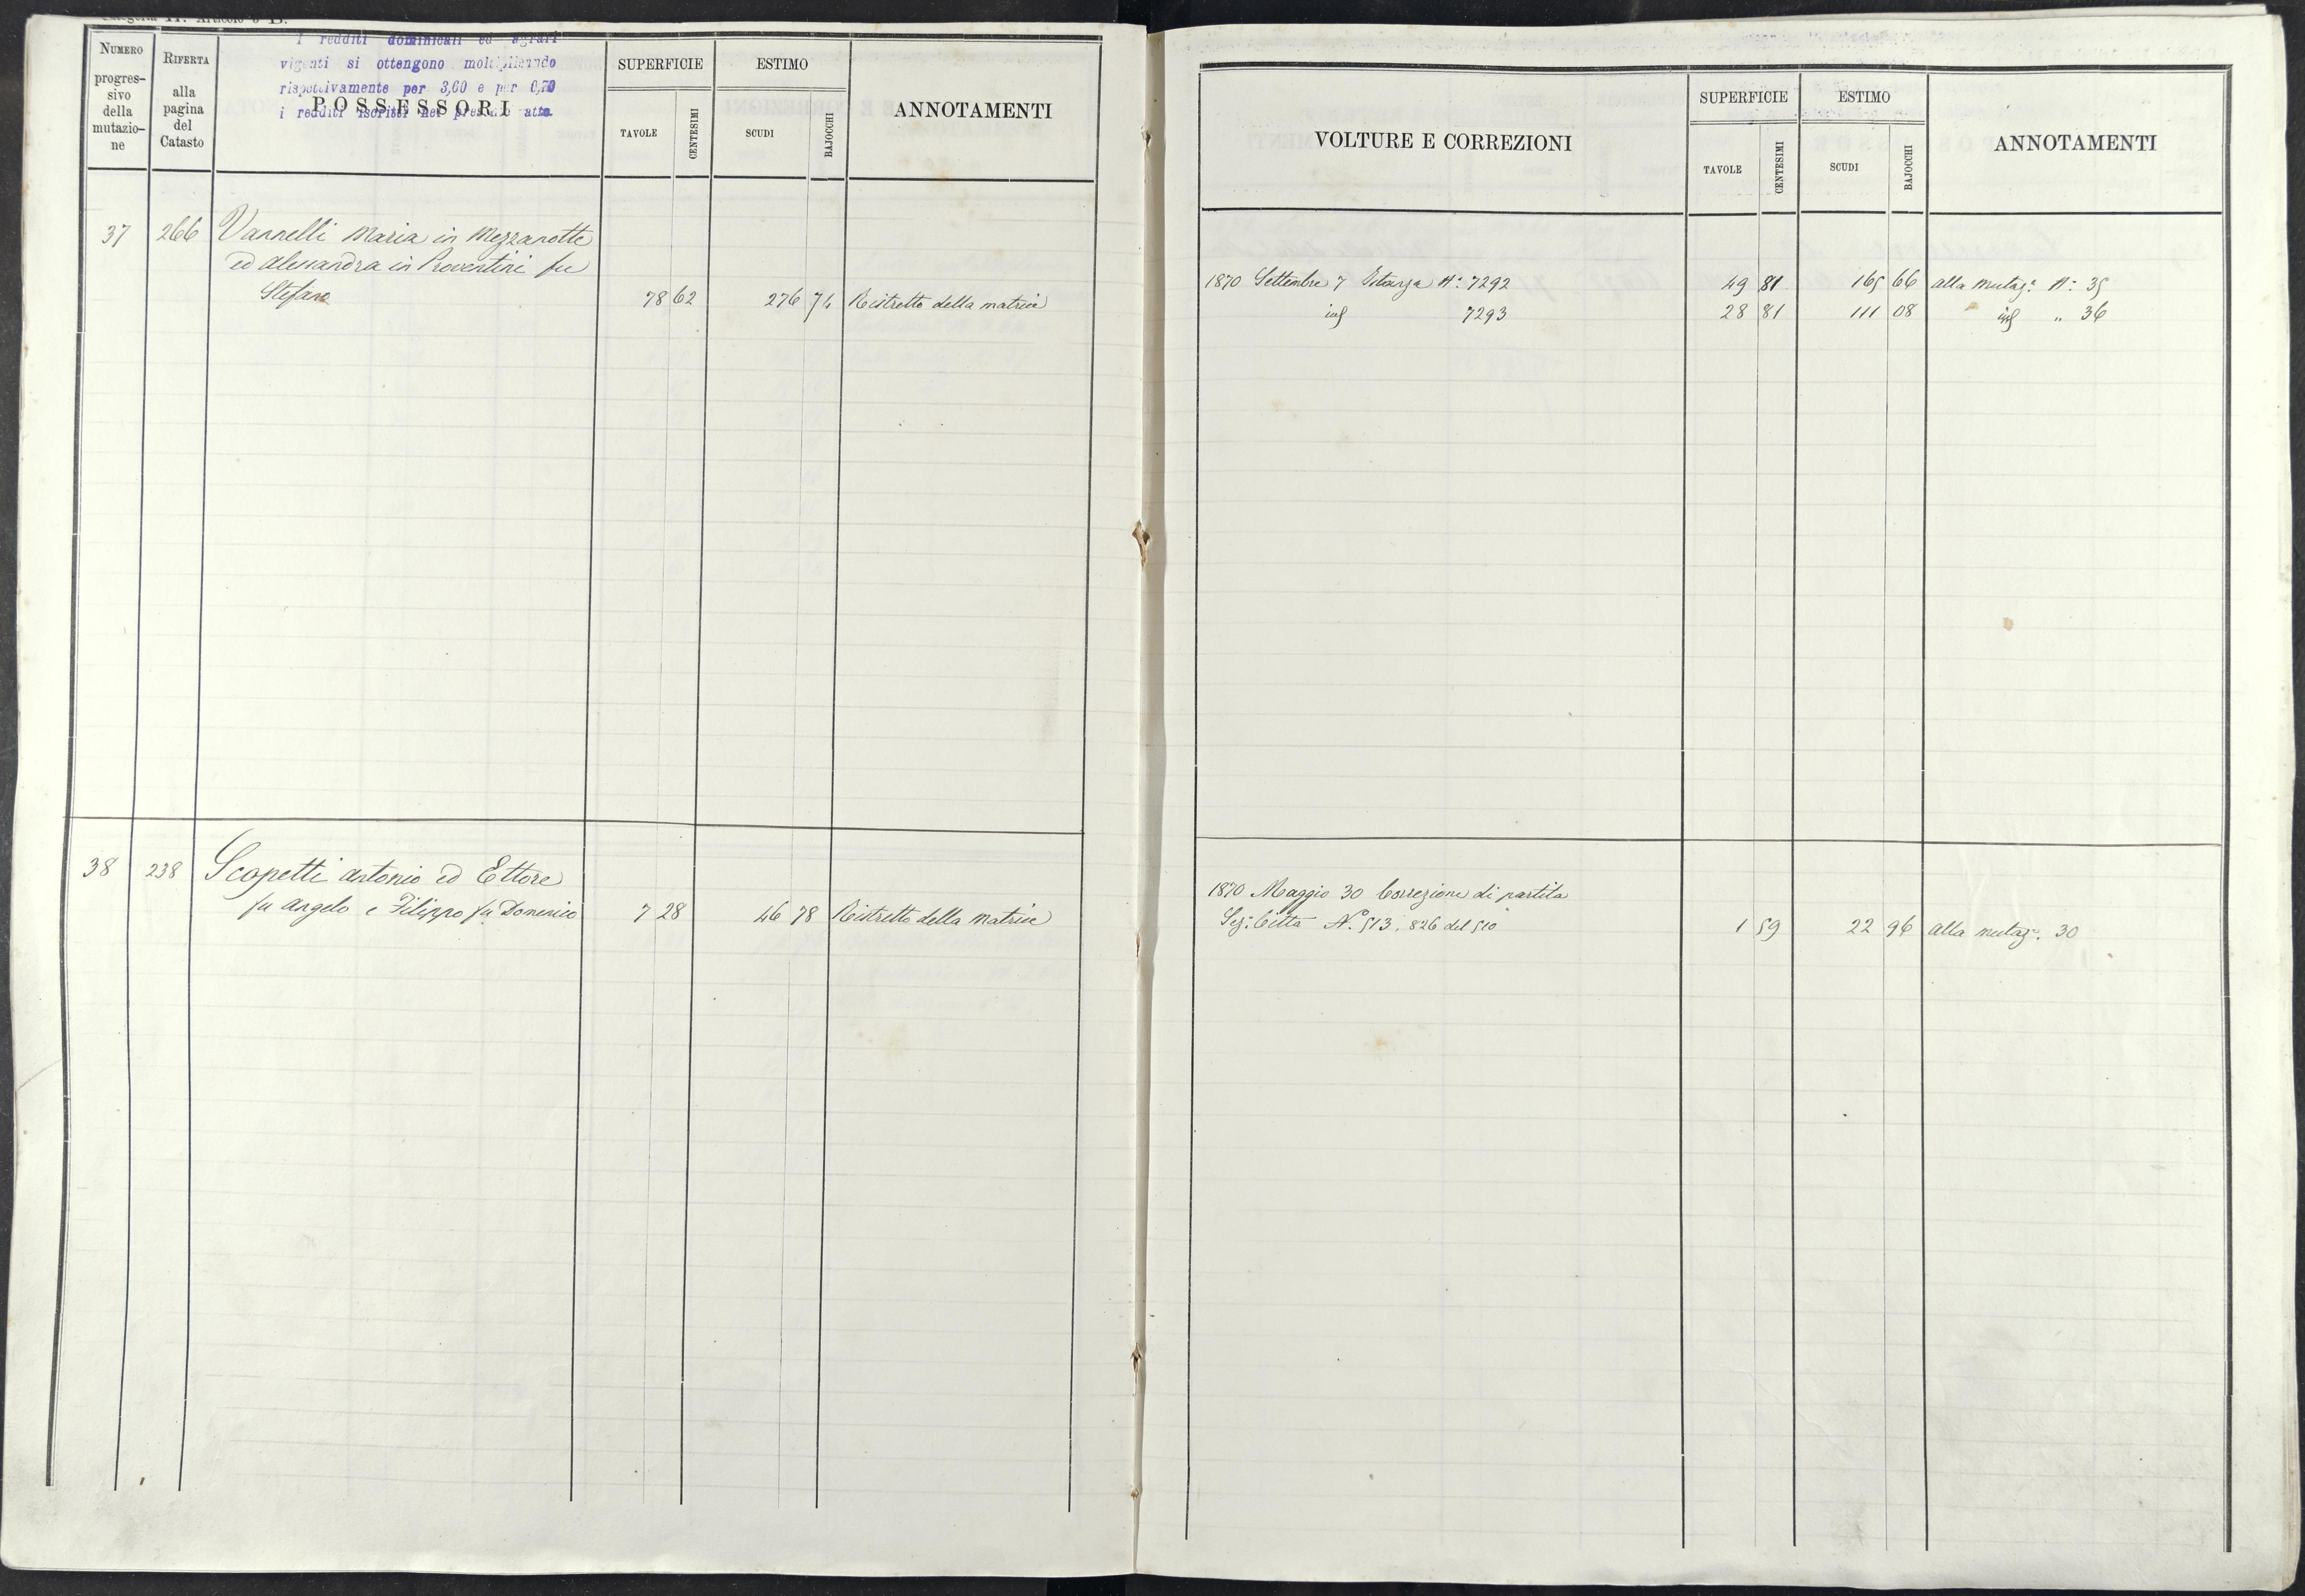 NUMERO
progres-
sivo
della
mutazio-
ne
RIFERTA
alla
pagina
del
Catasto
I redditi dominicali ed agrari
vigenti si ottengono moltiplicando
rispettivamente per 3,60 e per 0,70
i redditi iscritti nel presente atto.
POSSESSORI
SUPERFICIE
TAVOLE
CENTESIMI
ESTIMO
SCUDI
BAJOCCHI
ANNOTAMENTI
37 266 Vannelli Maria in Mezzanotte
ed Alessandra in Proventini fu
Stefano 78 62 276 74 Ristretto della matrice
38 238 Scopetti Antonio ed Ettore
fu Angelo e Filippo fu Domenico 7 28 46 78 Ristretto della matrice
VOLTURE E CORREZIONI
SUPERFICIE
TAVOLE
CENTESIMI
ESTIMO
SCUDI
BAJOCCHI
ANNOTAMENTI
1870 Settembre 7 Istanza N: 7292 49 81 165 66 alla mutaz: N: 35
7293 28 81 111 08 " 36
1870 Maggio 30 Correzione di partita
Sez: Città N. 513, 826 del 510 1 59 22 96 alla mutaz: 30